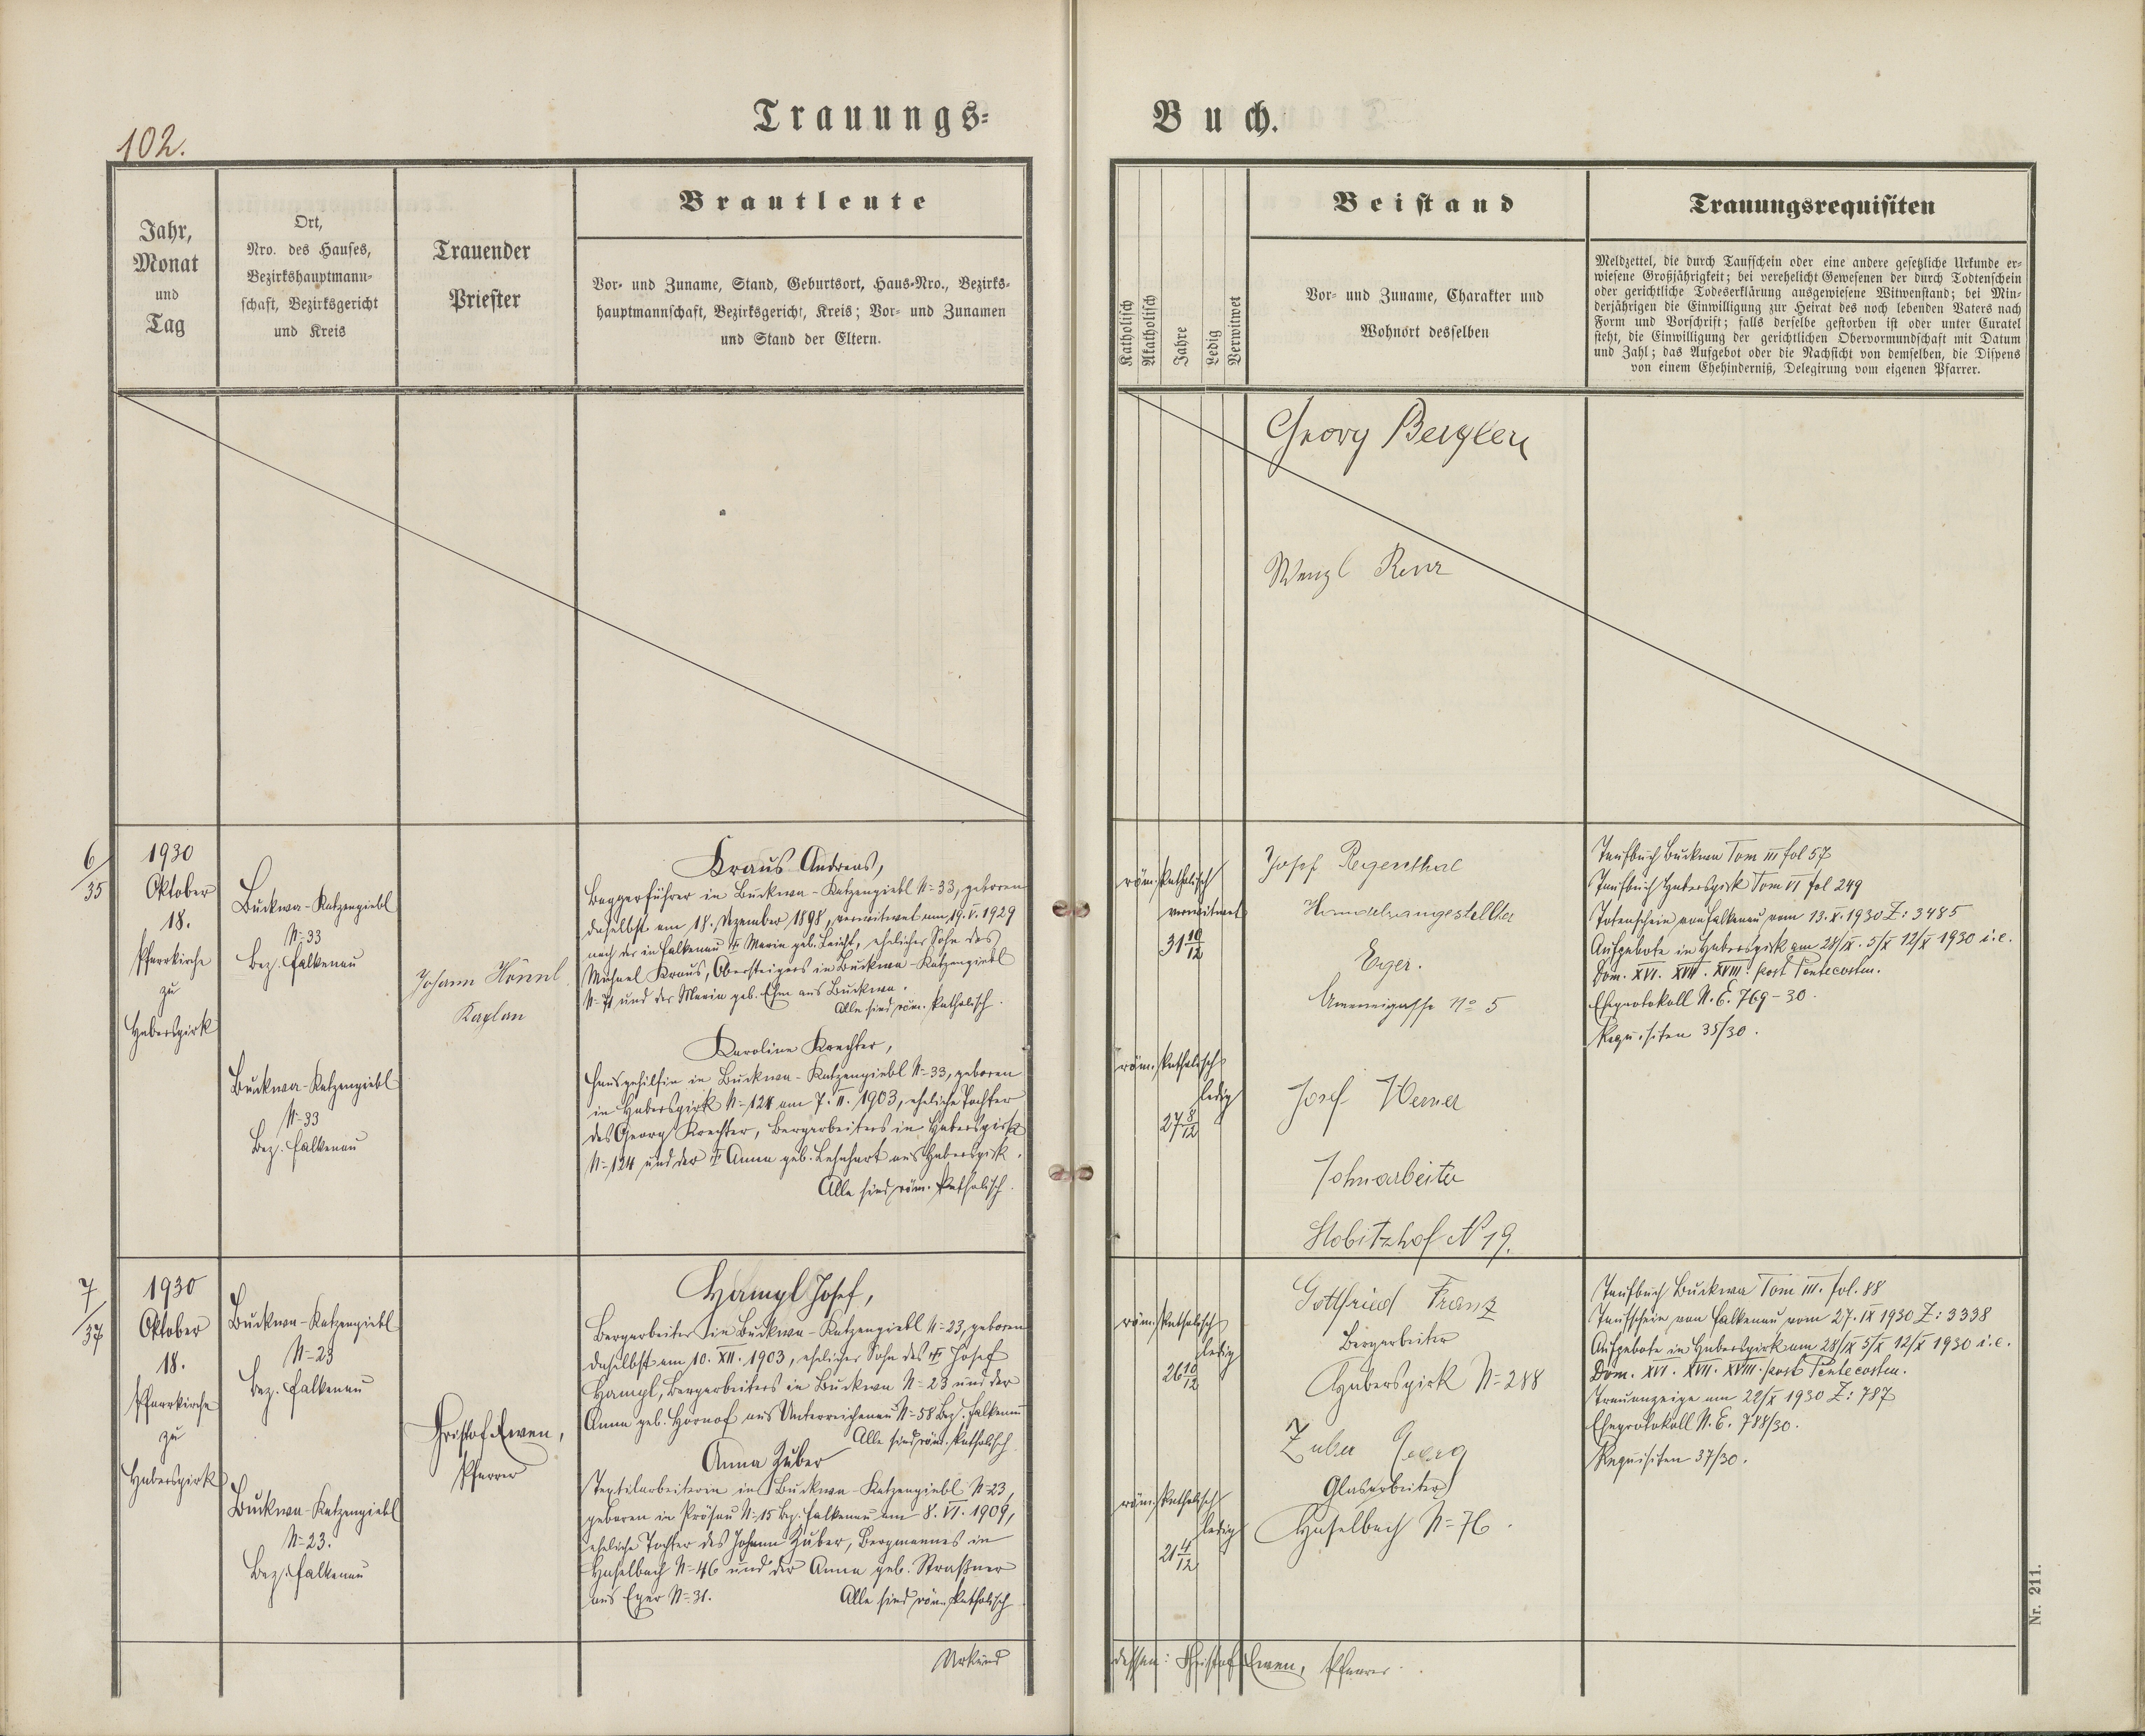 102.
Trauungs=
Buch.
Jahr,
Monat
und
Tag
Ort,
Nro. des Hauses,
Bezirkshauptmann-
schaft, Bezirksgericht
und Kreis
Trauender
Priester
Brautleute
Vor- und Zuname, Stand, Geburtsort, Haus-Nro., Bezirks-
hauptmannschaft, Bezirksgericht, Kreis; Vor- und Zunamen
und Stand der Eltern.
Katholisch
Akatholisch
Jahre
Ledig
Verwitwet
Beistand
Vor- und Zuname, Charakter und
Wohnort desselben
Trauungsrequisiten
Meldzettel, die durch Taufschein oder eine andere gesetzliche Urkunde er-
wiesene Großjährigkeit; bei verehelicht Gewesenen der durch Todtenschein
oder gerichtliche Todeserklärung ausgewiesene Witwenstand; bei Min-
derjährigen die Einwilligung zur Heirat des noch lebenden Vaters nach
Form und Vorschrift; falls derselbe gestorben ist oder unter Curatel
steht, die Einwilligung der gerichtlichen Obervormundschaft mit Datum
und Zahl; das Aufgebot oder die Nachsicht von demselben, die Dispens
von einem Ehehinderniß, Delegirung vom eigenen Pfarrer.
Georg
Wenzl
6/35
1930
Oktober
18.
Pfarrkirche
zu
Haberspirk
Buckwa-Katzengiebl
N=33
Bez. Falkenau
Buckwa-Katzengiebl
N=33
Bez. Falkenau
Johann Hönnl
Kaplan
Kraus Andreas,
Baggerführer in Buckwa-Katzengiebl N=33, geboren
daselbst am 18. Dezember 1898, verwitwet am 19. V. 1929
nach der in Falkenau † Maria geb. Leicht, ehelicher Sohn des
Michael Kraus, Obersteigers in Buckwa-Katzengiebl
N=71 und der Maria geb. Ehm aus Buckwa.
Alle sind röm. katholisch.
Karoline Krechter,
Hausgehilfin in Buckwa-Katzengiebl N=33, geboren
in Haberspirk N=124 am 7. II. 1903, eheliche Tochter
des Georg Krechter, Bergarbeiters in Haberspirk
N=124 und der † Anna geb. Lehnhart aus Haberspirk.
Alle sind röm. katholisch.
röm. katholisch
verwitwet
31 10/12
röm. katholisch
ledig
27 8/12
Josef Regenthal
Handelsangestellter
Eger.
Ameneigasse No 5
Josef Werner
Lohnarbeiter
Stobitzhof N 19.
Taufbuch Buckwa Tom III fol 57
Taufbuch Haberspirk Tom VI fol 249
Totenschein von Falkenau vom 13. X. 1930 Z: 3485
Aufgebote in Haberspirk am 28/IX. 5/X 12/X 1930 i. e.
Dom. XVI. XVII. XVIII. post Pentecosten.
Eheprotokoll N. E. 769-30.
Requisiten 35/30.
7/37
1930
Oktober
18.
Pfarrkirche
zu
Haberspirk
Buckwa-Katzengiebl
N=23
Bez. Falkenau
Buckwa-Katzengiebl
N=23.
Bez. Falkenau
Pfarrer
Hampl Josef,
Bergarbeiter in Buckwa-Katzengiebl N=23, geboren
daselbst am 10. XII. 1903, ehelicher Sohn des † Josef
Hampl, Bergarbeiters in Buckwa N=23 und der
Anna geb. Hornof aus Unterreichenau N=58 Bez. Falkenau
Alle sind röm. katholisch.
Anna Zuber
Textilarbeiterin in Buckwa-Katzengiebl N=23,
geboren in Prösau N=15 Bez. Falkenau am 8. VI. 1909,
eheliche Tochter des Johann Zuber, Bergmannes in
Haselbach N=46 und der Anna geb. Straßner
aus Eger N=31.
Alle sind röm. katholisch
röm. katholisch
ledig
26 10/12
röm. katholisch
ledig
21 4/12
Gottfried Franz
Bergarbeiter
Haberspirk N=288
Zuber Georg
Glasarbeiter
Haselbach N=76.
Taufbuch Buckwa Tom III. fol. 88
Taufschein von Falkenau vom 27. IX 1930 Z: 3338
Aufgebote in Haberspirk am 28/IX 5/X 12/X 1930 i. e.
Dom. XVI. XVII. XVIII. post Pentecosten.
Trauanzeige am 22/X 1930 Z: 787
Eheprotokoll N. E. 788/30.
Requisiten 37/30.
Urkund
dessen: Pfarrer.
Nr. 211.